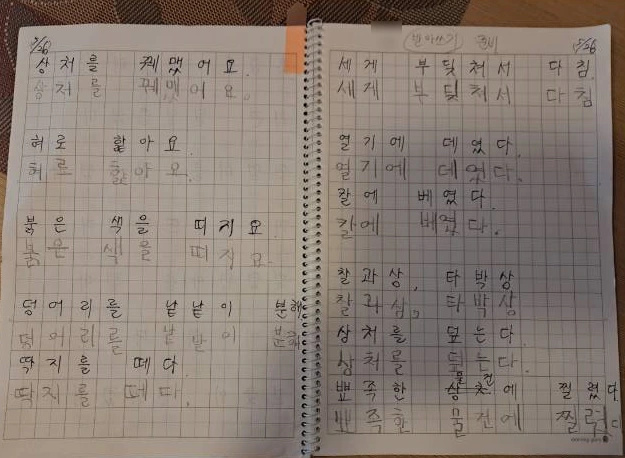 5/26
상처를 꿰맸어요.
상저를 꿰맸어요.
혀로 핥아요.
혀로 핥아요.
붉은 색을 띠지요.
붉은 색을 띠지요.
덩어리를 낱낱이 분해
덩어리를 낱낱이 분해
딱지를 떼다.
딱지를 떼다.
받아쓰기 준비 5/26
세게 부딪쳐서 다침.
세게 부딪쳐서 다침
열기에 데였다.
열기에 데였다.
칼에 베였다.
칼에 베였다.
찰과상, 타박상
찰과상, 타박상
상처를 덮는다.
상처를 덮는다.
물건
뾰족한 상처에 찔렸다.
뾰족한 물건에 찔렸다